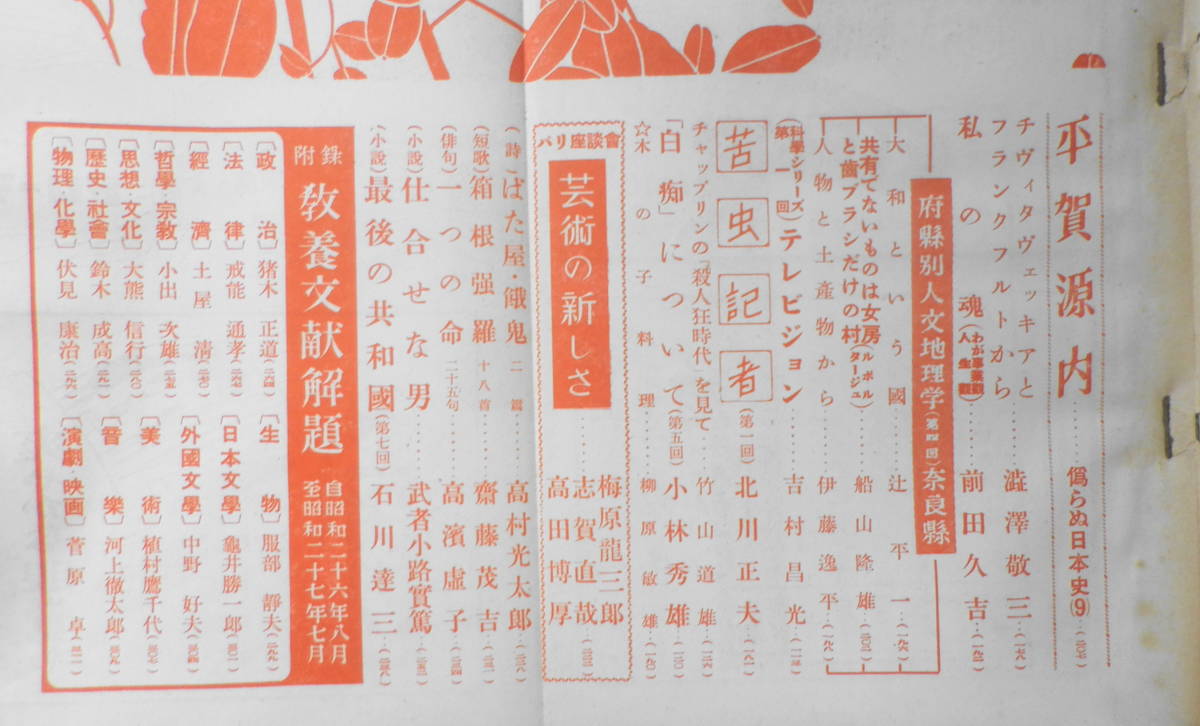 平賀源内……僞らぬ日本史⑨
チヴィタヴェッキアと
フランクフルトから……澁澤敬三
私の魂……前田久吉
府縣別人文地理学(第四回)奈良縣
大和という國……辻平一(一九六)
共有でないものは女房
と歯ブラシだけの村……船山隆雄
人物と土産物から……伊藤逸平(一九八)
科學シリーズ
第一回
テレビジョン……吉村昌光
苦虫記者(第一回)北川正夫
チャップリンの「殺人狂時代」を見て……竹山道雄
「白痴」について(第五回)小林秀雄
☆木の子料理……柳原敏雄
パリ座談會
芸術の新しさ……梅原龍三郎
志賀直哉
高田博厚
(詩)ばた屋・餓鬼 二篇……高村光太郎
(短歌)箱根强羅 十八首……齋藤茂吉
(俳句)一つの命 二十五句……高濱虚子
(小説)仕合せな男……武者小路實篤
(小説)最後の共和國(第七回)石川達三
附録
教養文献解題
自昭和二十六年八月
至昭和二十七年七月
政治 猪木正道
法律 戒能通孝
經濟 土屋清
哲學・宗教 小出次雄
思想・文化 大熊信行
歴史・社會 鈴木成高
物理・化學 伏見康治
生物 服部靜夫
日本文學 龜井勝一郎
外國文學 中野好夫
美術 植村鷹千代
音樂 河上徹太郎
演劇・映画 菅原卓